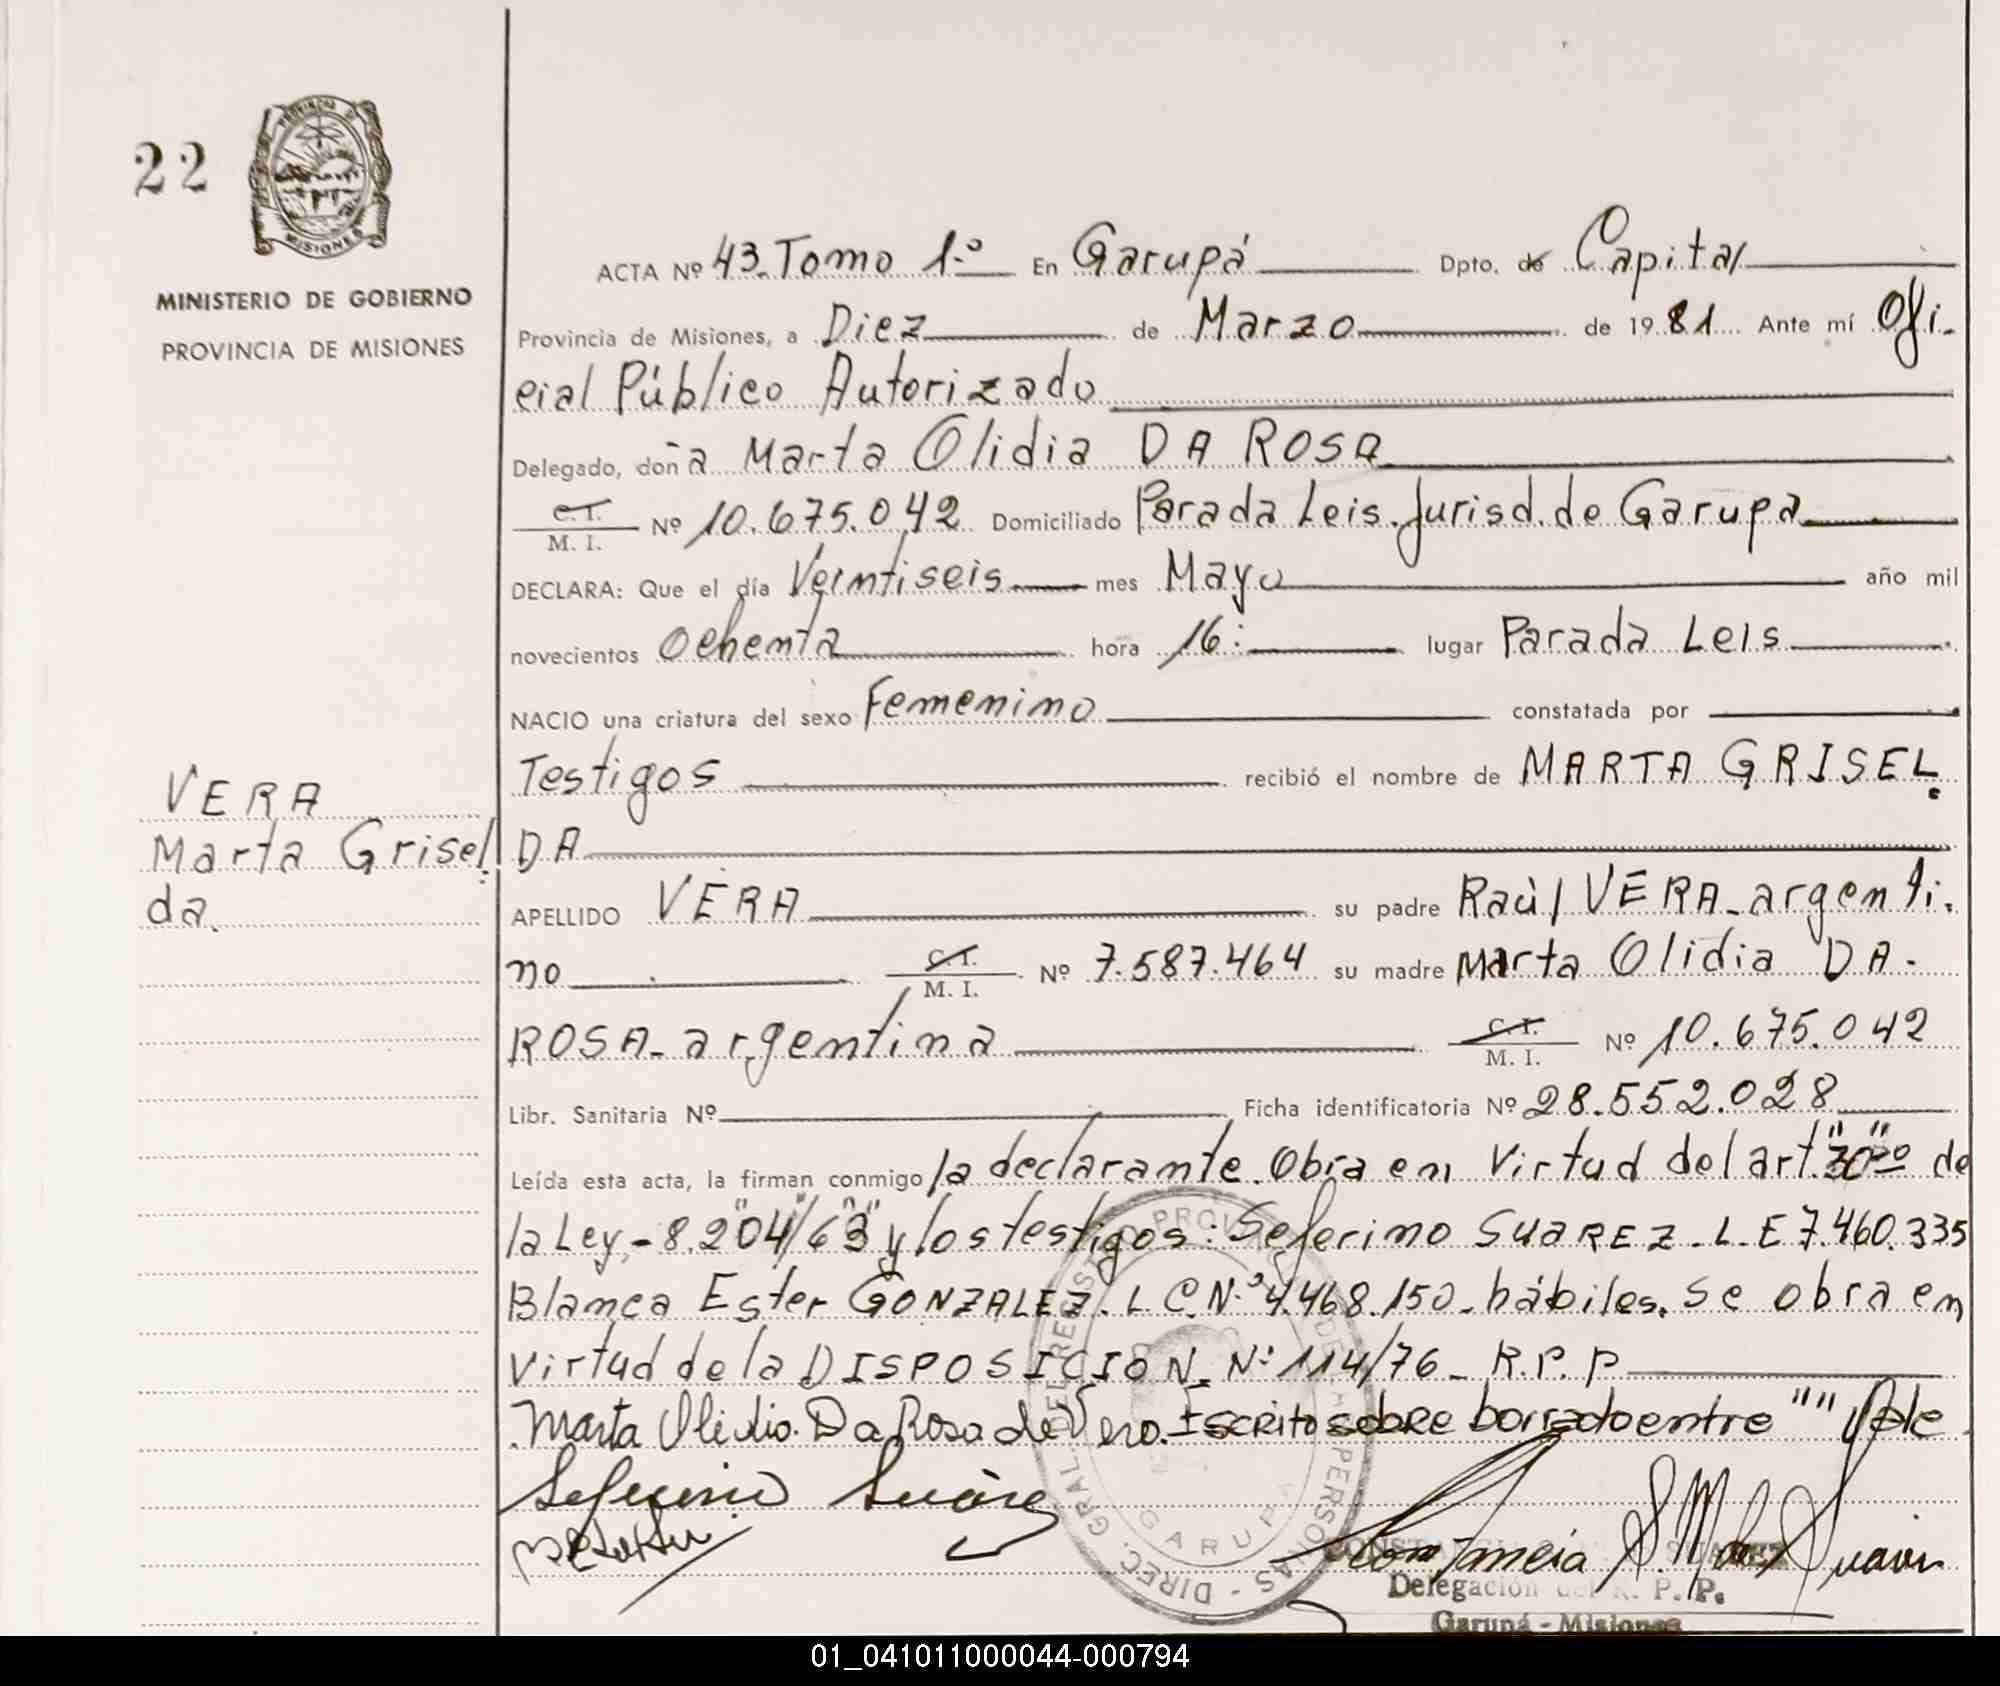 22
PROVINCIA DE
MISIONES
MINISTERIO DE GOBIERNO
PROVINCIA DE MISIONES
VERA
Marta Grisel
da.
ACTA Nº 43. Tomo 1.º En Garupá Dpto. de Capital
Provincia de Misiones, a Diez de Marzo de 1981 Ante mí Ofi-
cial Público Autorizado
Delegado, doña Marta Olidia DA ROSA
C.I. M. I. Nº 10.675.042 Domiciliado Parada Leis. Jurisd. de Garupa
DECLARA: Que el día Veintiseis mes Mayo año mil
novecientos Ochenta hora 16: lugar Parada Leis
NACIO una criatura del sexo Femenino constatada por
Testigos recibió el nombre de MARTA GRISEL
DA
APELLIDO VERA su padre Raùl VERA - argenti.
no C.I. M. I. Nº 7.587.464 su madre Marta Olidia DA -
ROSA - argentina C.I. M. I. Nº 10.675.042
Libr. Sanitaria Nº Ficha identificatoria Nº 28.552.028
Leída esta acta, la firman conmigo la declarante. Obra en Virtud del art. "30"º de
la Ley - 8."204"/6"3" y los testigos: Seferino SUAREZ. L.E 7.460.335
Blanca Ester GONZALEZ. L C.N.º 4.468.150 - hábiles. Se obra en
Virtud de la DISPOSICION. Nº 114/76 - R.P.P
Marta Olidia Da Rosa de Vera. Escrito sobre borrado entre "" Vale
Seferino Suàrez
Constancia S. M de Suarez
DIREC. GRAL. DEL REGISTRO PROVINCIAL DE LAS PERSONAS
GARUPA
Delegación del R. P. P.
Garupá - Misiones
01_041011000044-000794